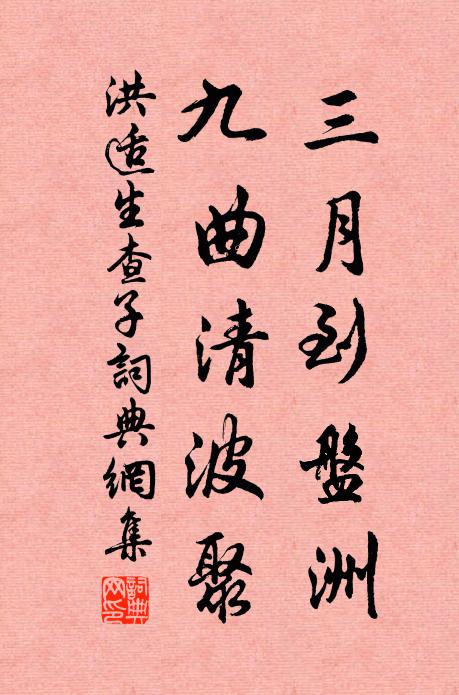 三月到盤洲
九曲清波聚
洪适生查子詞典網集
詞典網印